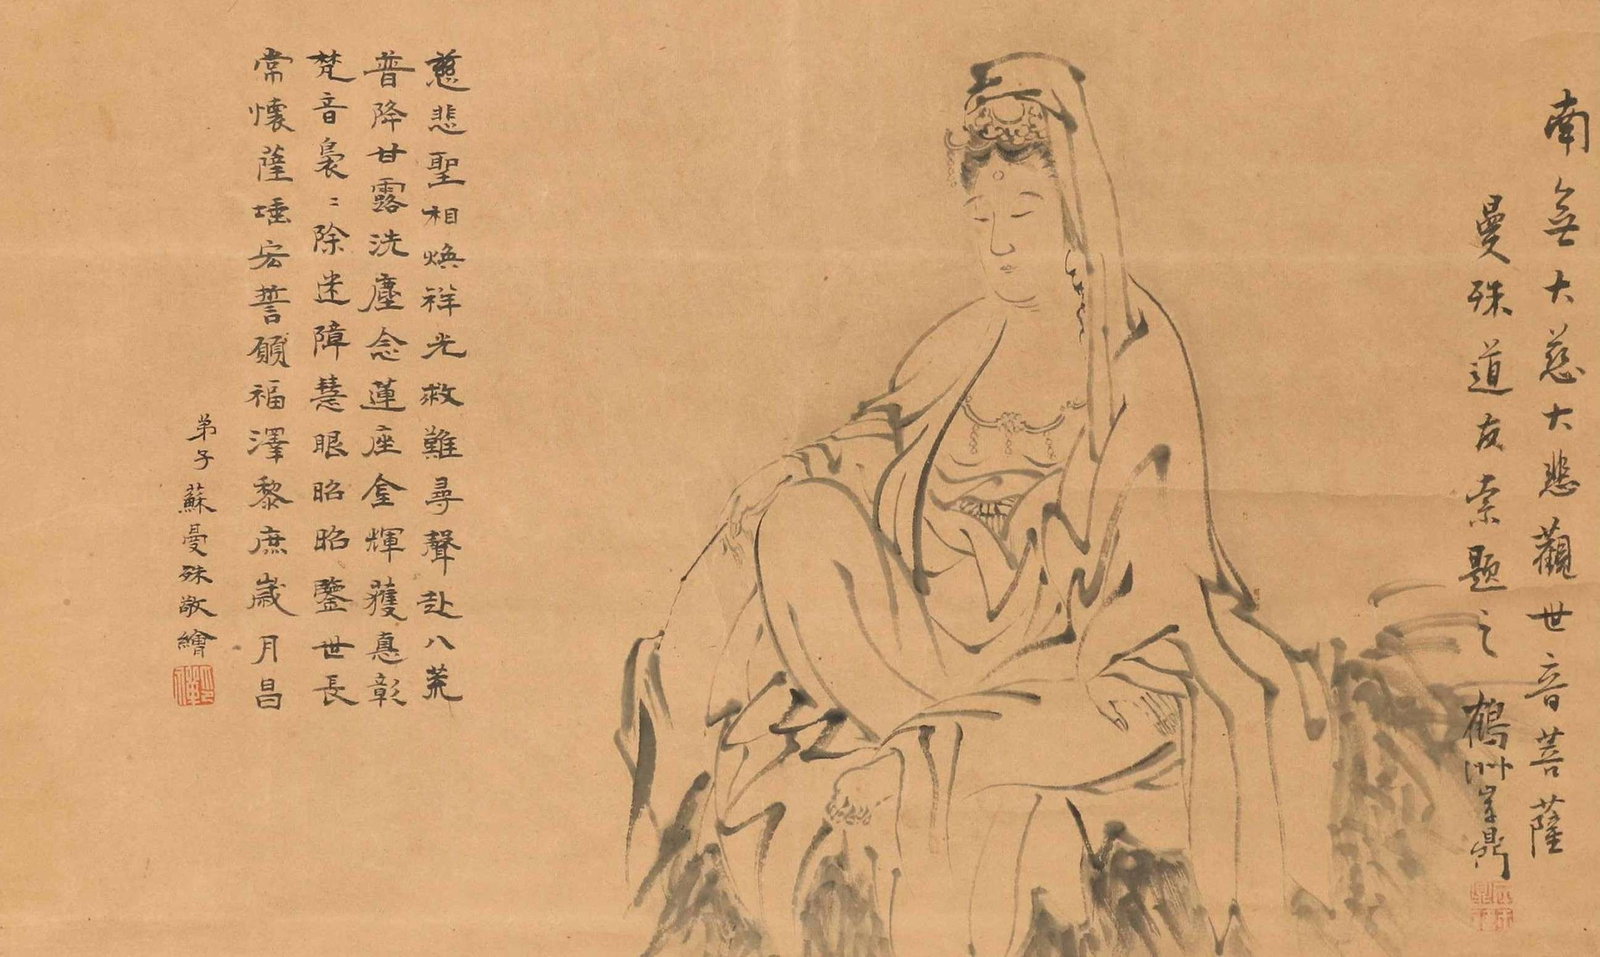 南無大慈大悲觀世音菩薩
曼殊道友索題之 鶴洲學鼎
慈悲聖相煥祥光救難尋聲赴八荒
普降甘露洗塵念蓮座金輝護惪彰
梵音裊〻除迷障慧眼昭昭鑒世長
常懷薩埵宏誓願福澤黎庶歲月昌
弟子蘇曼殊敬繪